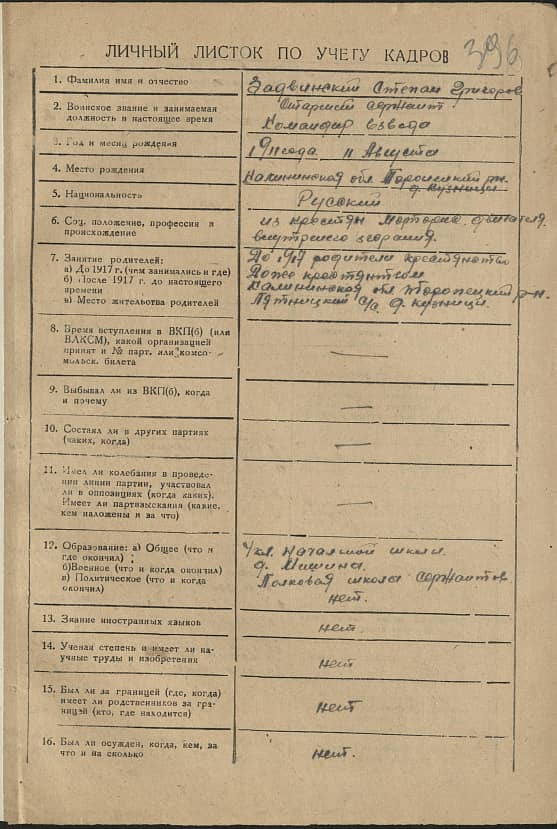 396
ЛИЧНЫЙ ЛИСТОК ПО УЧЕТУ КАДРОВ
1. Фамилия имя и отчество
Задвинский Степан Григоров
2. Воинское звание и занимаемая
должность в настоящее время
Старший сержант
Командир взвода
3. Год и месяц рождения
1911 года 11 Августа
4. Место рождения
Калининская обл Торопецкий р-н.
д. Кузницы
5. Национальность
Русский
6. Соц. положение, профессия и
происхождение
из крестьян Моторист двигателя
внутренего згорания.
7. Занятие родителей:
а) До 1917 г. (чем занимались и где)
б) После 1917 г. до настоящего
времени
в) Место жительства родителей
До 1917 родители крестьянство
Калининская обл Торопецкий р-н.
Пятницкий с/с д. Кузницы.
8. Время вступления в ВКП(б) (или
ВЛКСМ), какой организацией
принят и № парт. или комсо-
мольск. билета
—
9. Выбывал ли из ВКП(б), когда
и почему
—
10. Состоял ли в других партиях
(каких, когда)
—
11. Имел ли колебания в проведе-
нии линии партии, участвовал
ли в оппозициях (когда каких).
Имеет ли партвзыскания (какие,
кем наложены и за что)
—
12. Образование: а) Общее (что и
где окончил)
б) Военное (что и когда окончил)
в) Политическое (что и когда
окончил)
4 кл. Начальной школы
д. Мишина.
Полковая школа сержантов
нет.
13. Знание иностранных языков
нет.
14. Ученая степень и имеет ли на-
учные труды и изобретения
нет
15. Был ли за границей (где, когда)
имеет ли родственников за гра-
ницей (кто, где находится)
нет
16. Был ли осужден, когда, кем, за
что и на сколько
нет.